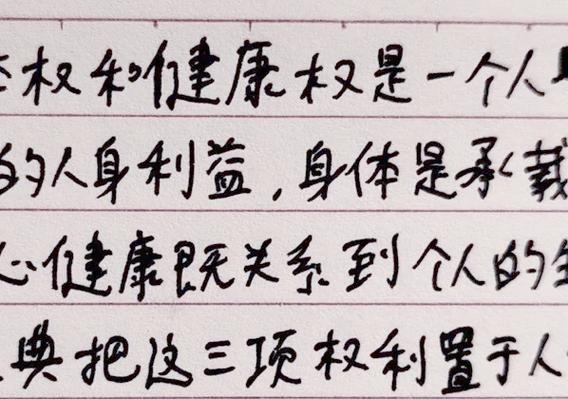 权和健康权是一个人
的人身利益,身体是承载
心健康既关系到个人的生
典把这三项权利置于人